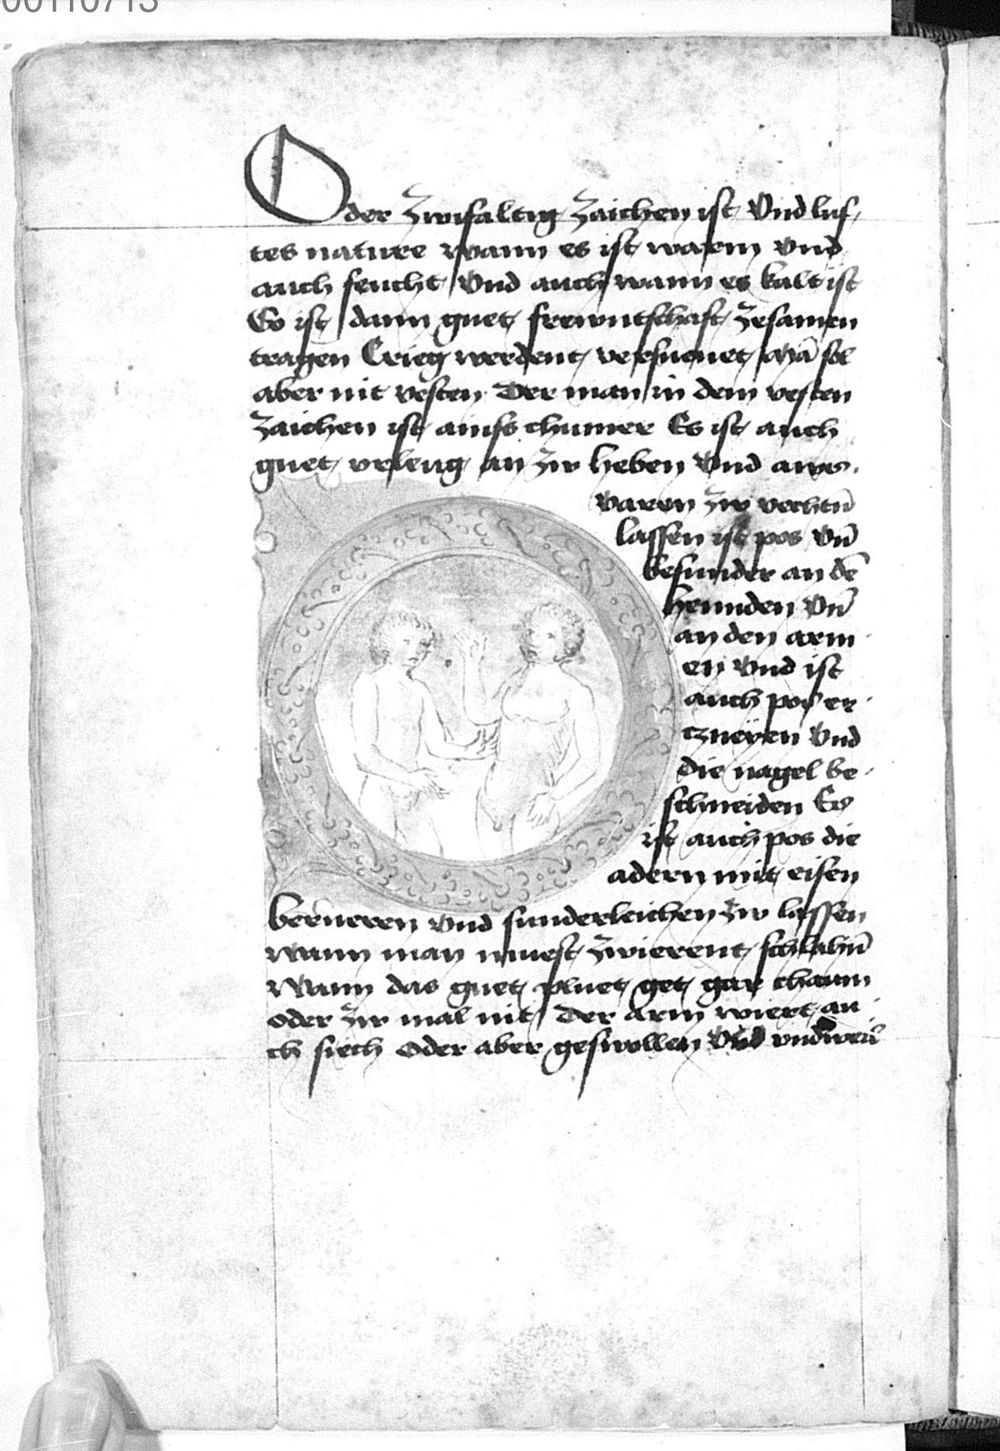 00110713
Oder zwifaltig zaichen ist Vnd luf
tes natuer wann es ist warm vnd
auch feucht Vnd auch wann es kalt ist
So ist dann guet frewntschaft zesamen
tragen Crieg werdent versuenet Mā sol
aber nit vesten Der man in dem vesten
zaichen ist ains chumer Es ist auch
guet vrleug an zw heben Vnd aws
varen zw vechtn̄
lassen ist pos vn̄
besunder an dē
hennden Vn̄
an den arm
en Vnd ist
auch pos er
czneyen Vnd
die nagel be
schneiden Es
ist auch pos die
adern mit eisen
berueren vnd sunderleichen zw lassen
wann man muest zwierent schlahn̄
Wann das guet pluet get gar chaum
oder zw mal nit Der Arm wiert au
ch siech Oder aber geswollen Vnd